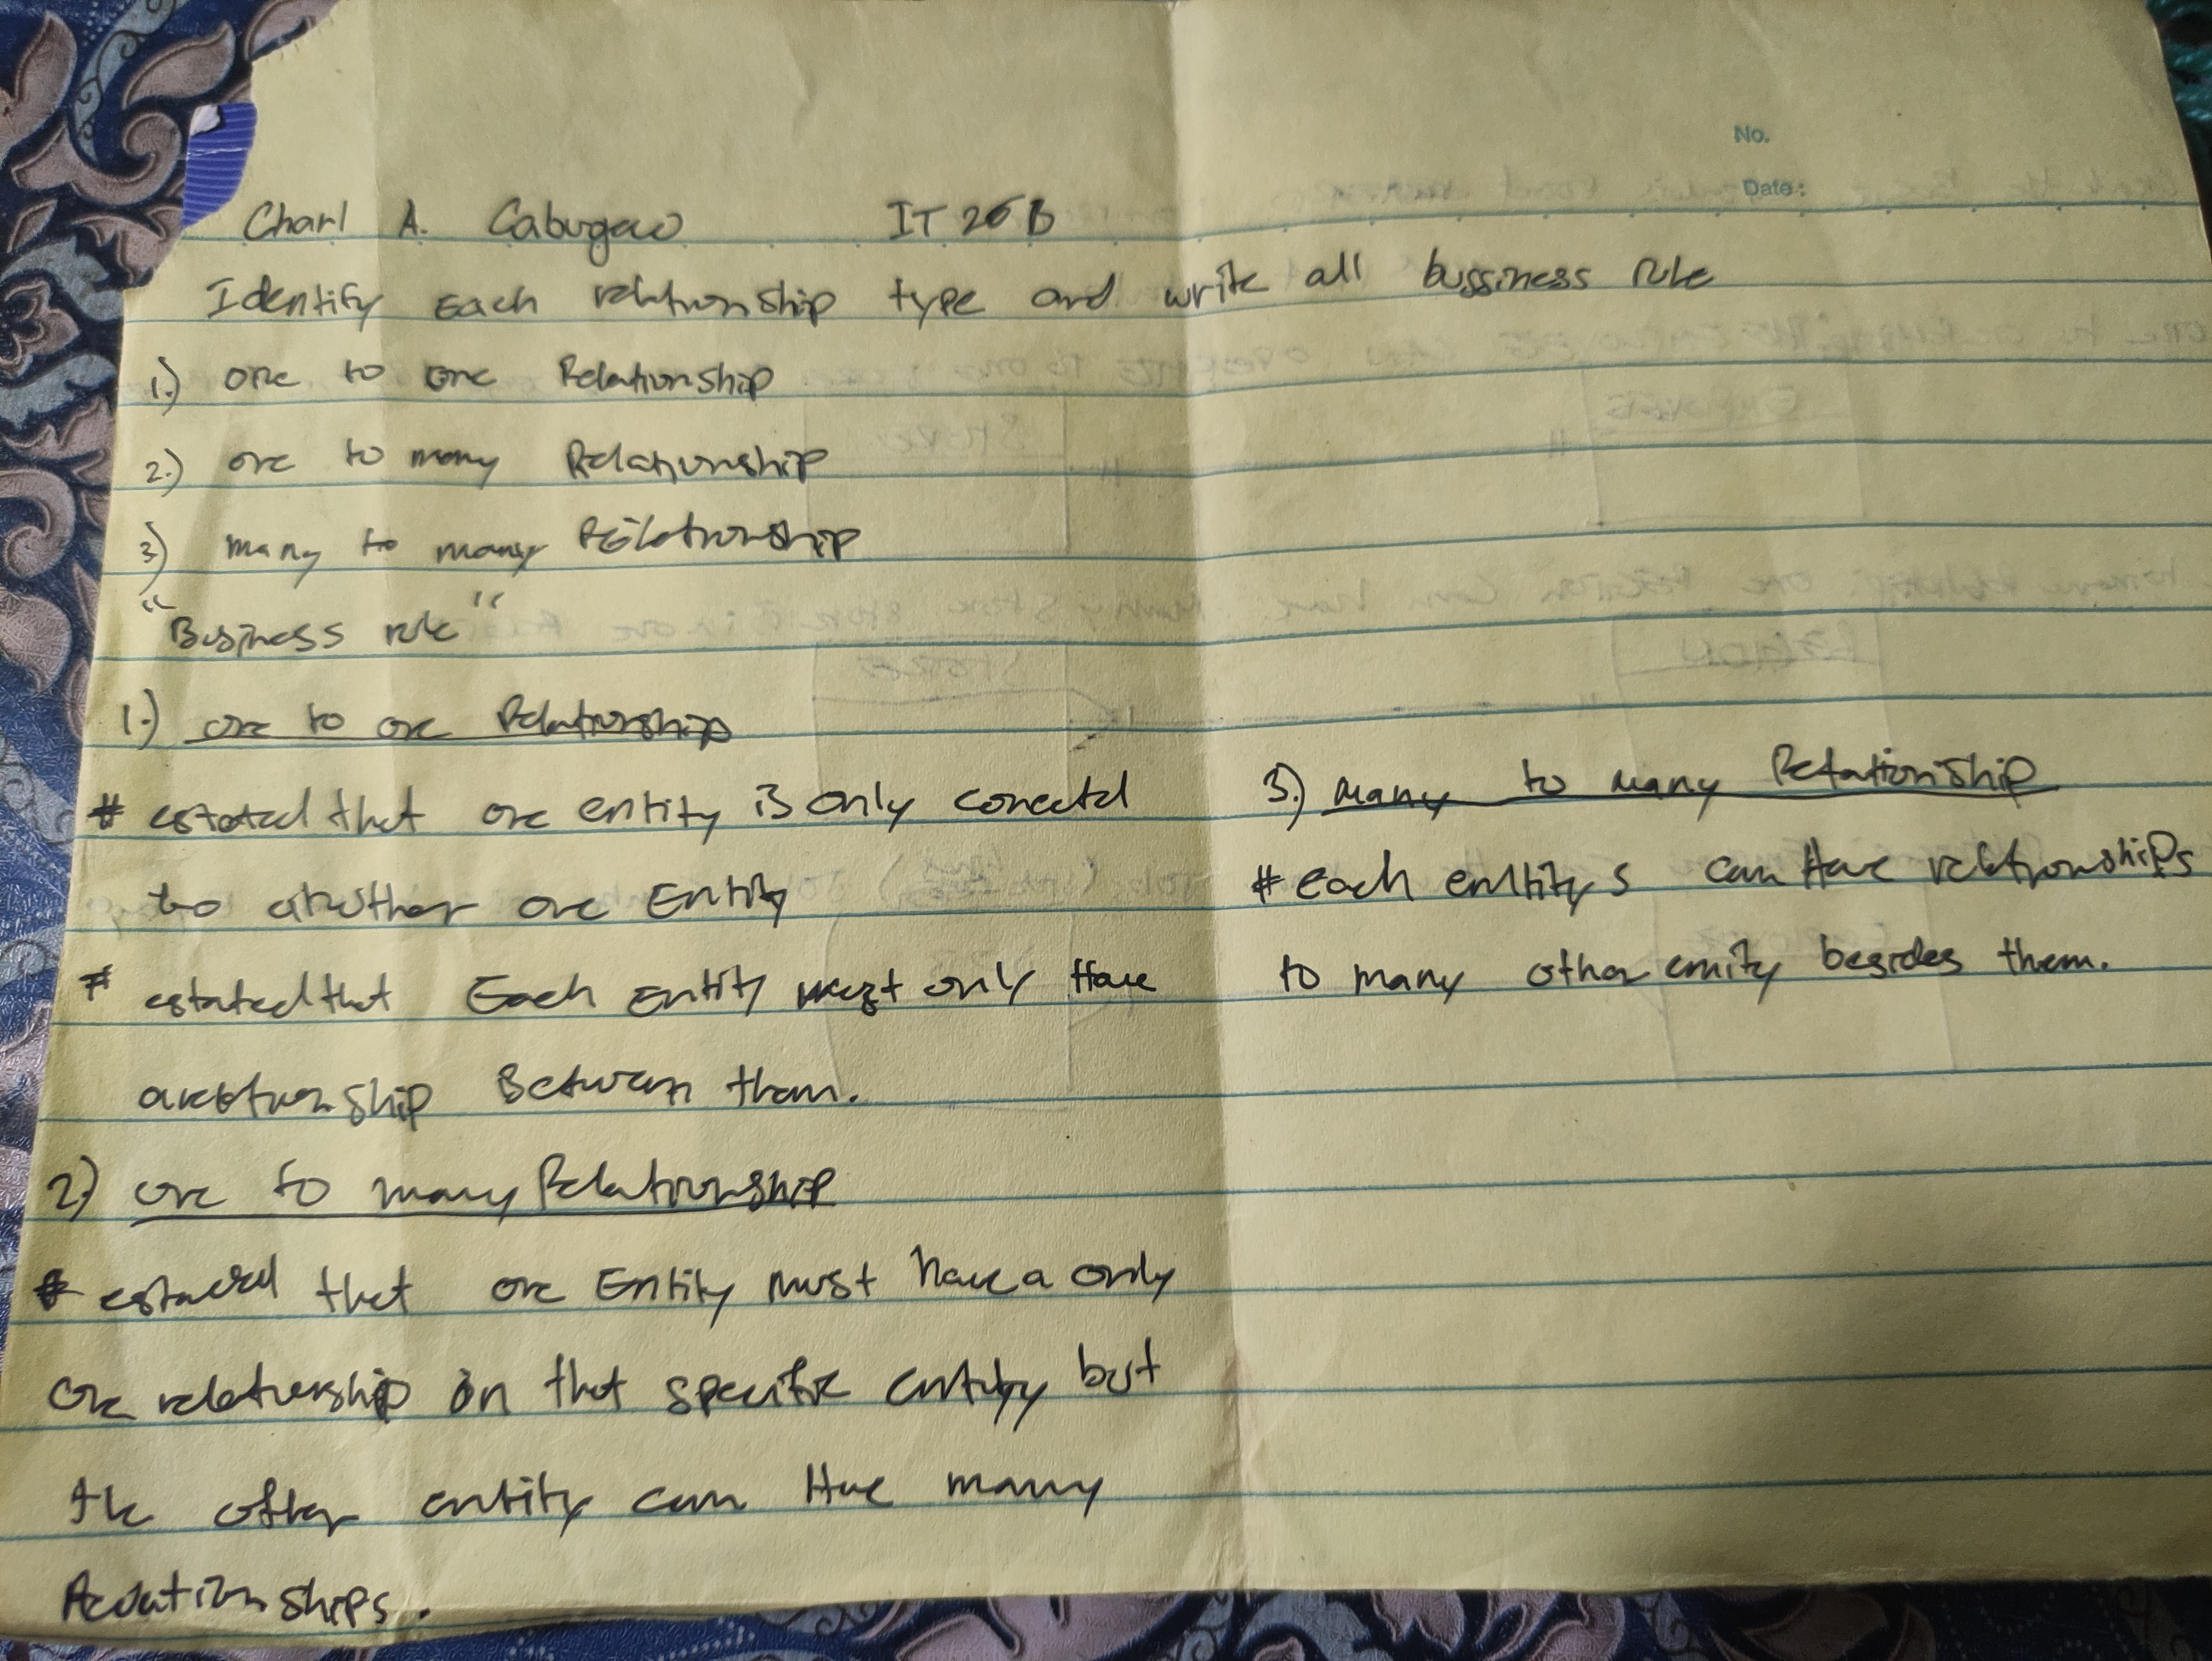 No.
Date:
Charl A. IT 26B
Identify Each relationship type and write all bussiness rule
1.) one to one Relationship
2.) one to many Relationship
3.) many to many Relationship
"Business rule"
1.) one to one Relationship
# estated that one entity is only conected
two another one Entity
# estated that Each entity must only Have
onebtionship Between them.
2.) one to many Relationship
# estated that one Entity must have a only
one relationship on that specific entity but
the other entity can Have many
Relationships.
3.) many to many Relationship
# each entitys can Have relationships
to many other enity besides them.